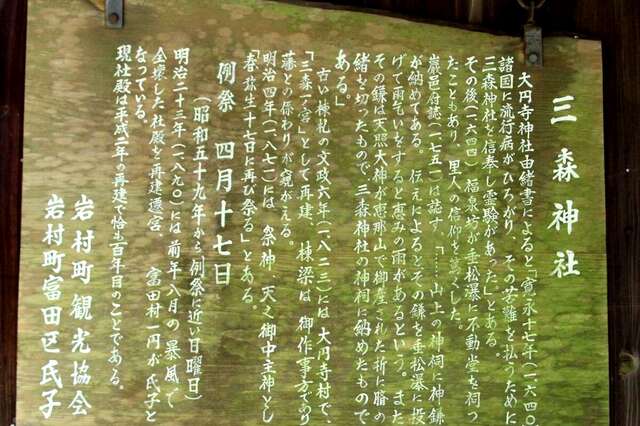 三森神社
大円寺神社由緒書によると「寛永十七年(一六四〇)
諸国に流行病がひろがり、その苦難を払うために
三森神社を信奉し霊験があった」とある。
その後(一六四四)福泉坊が垂松瀑に不動堂を祠っ
たこともあり、里人の信仰を篤くした。
巌邑府誌(一七五一)は誌す、「……山上の神祠に神鎌
が納めてある。伝えによるとその鎌を垂松瀑に投
げて雨乞いをすると恵みの雨があるという。また
その鎌は天照大神が恵那山で御産された折に臍の
緒を切ったもので、三森神社の神祠に納めたもので
ある。」
古い棟札の文政六年(一八二三)には大円寺村で、
「三森一ノ宮」として再建、棟梁は御作事方であり
藩との係わりが窺がえる。
明治四年(一八七一)には、祭神 天之御中主神とし
「春弥生十七日に再び祭る」とある。
例祭 四月十七日
(昭和五十九年から例祭に近い日曜日)
明治二十三年(一八九〇)には前年八月の暴風で
全壊した社殿を再建遷宮。富田村一円が氏子と
なっている。
現社殿は平成二年の再建で恰も百年目のことである。
岩村町観光協会
岩村町富田区氏子